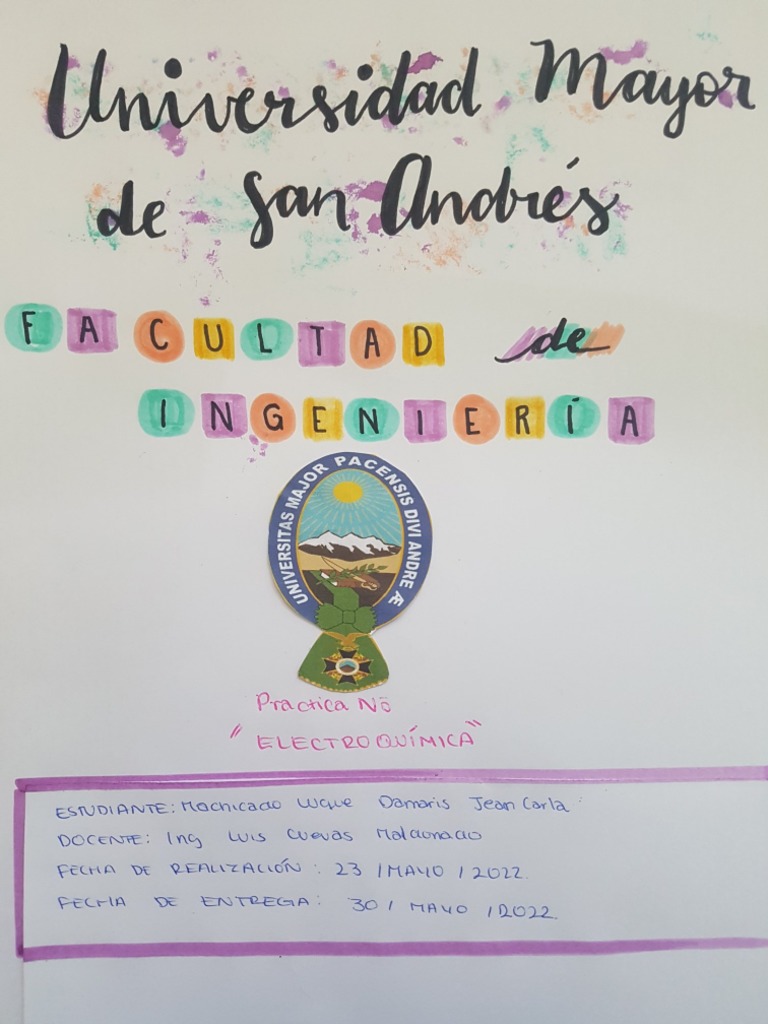 Universidad Mayor
de San Andrés
FACULTAD de
INGENIERÍA
UNIVERSITAS MAJOR PACENSIS DIVI ANDRE Æ
Practica Nō
"ELECTROQUÍMICA"
ESTUDIANTE: Machicado Luque Damaris Jean Carla
DOCENTE: Ing Luis Cuevas Maldonado
FECHA DE REALIZACIÓN : 23 / MAYO / 2022
FECHA DE ENTREGA: 30 / MAYO / 2022